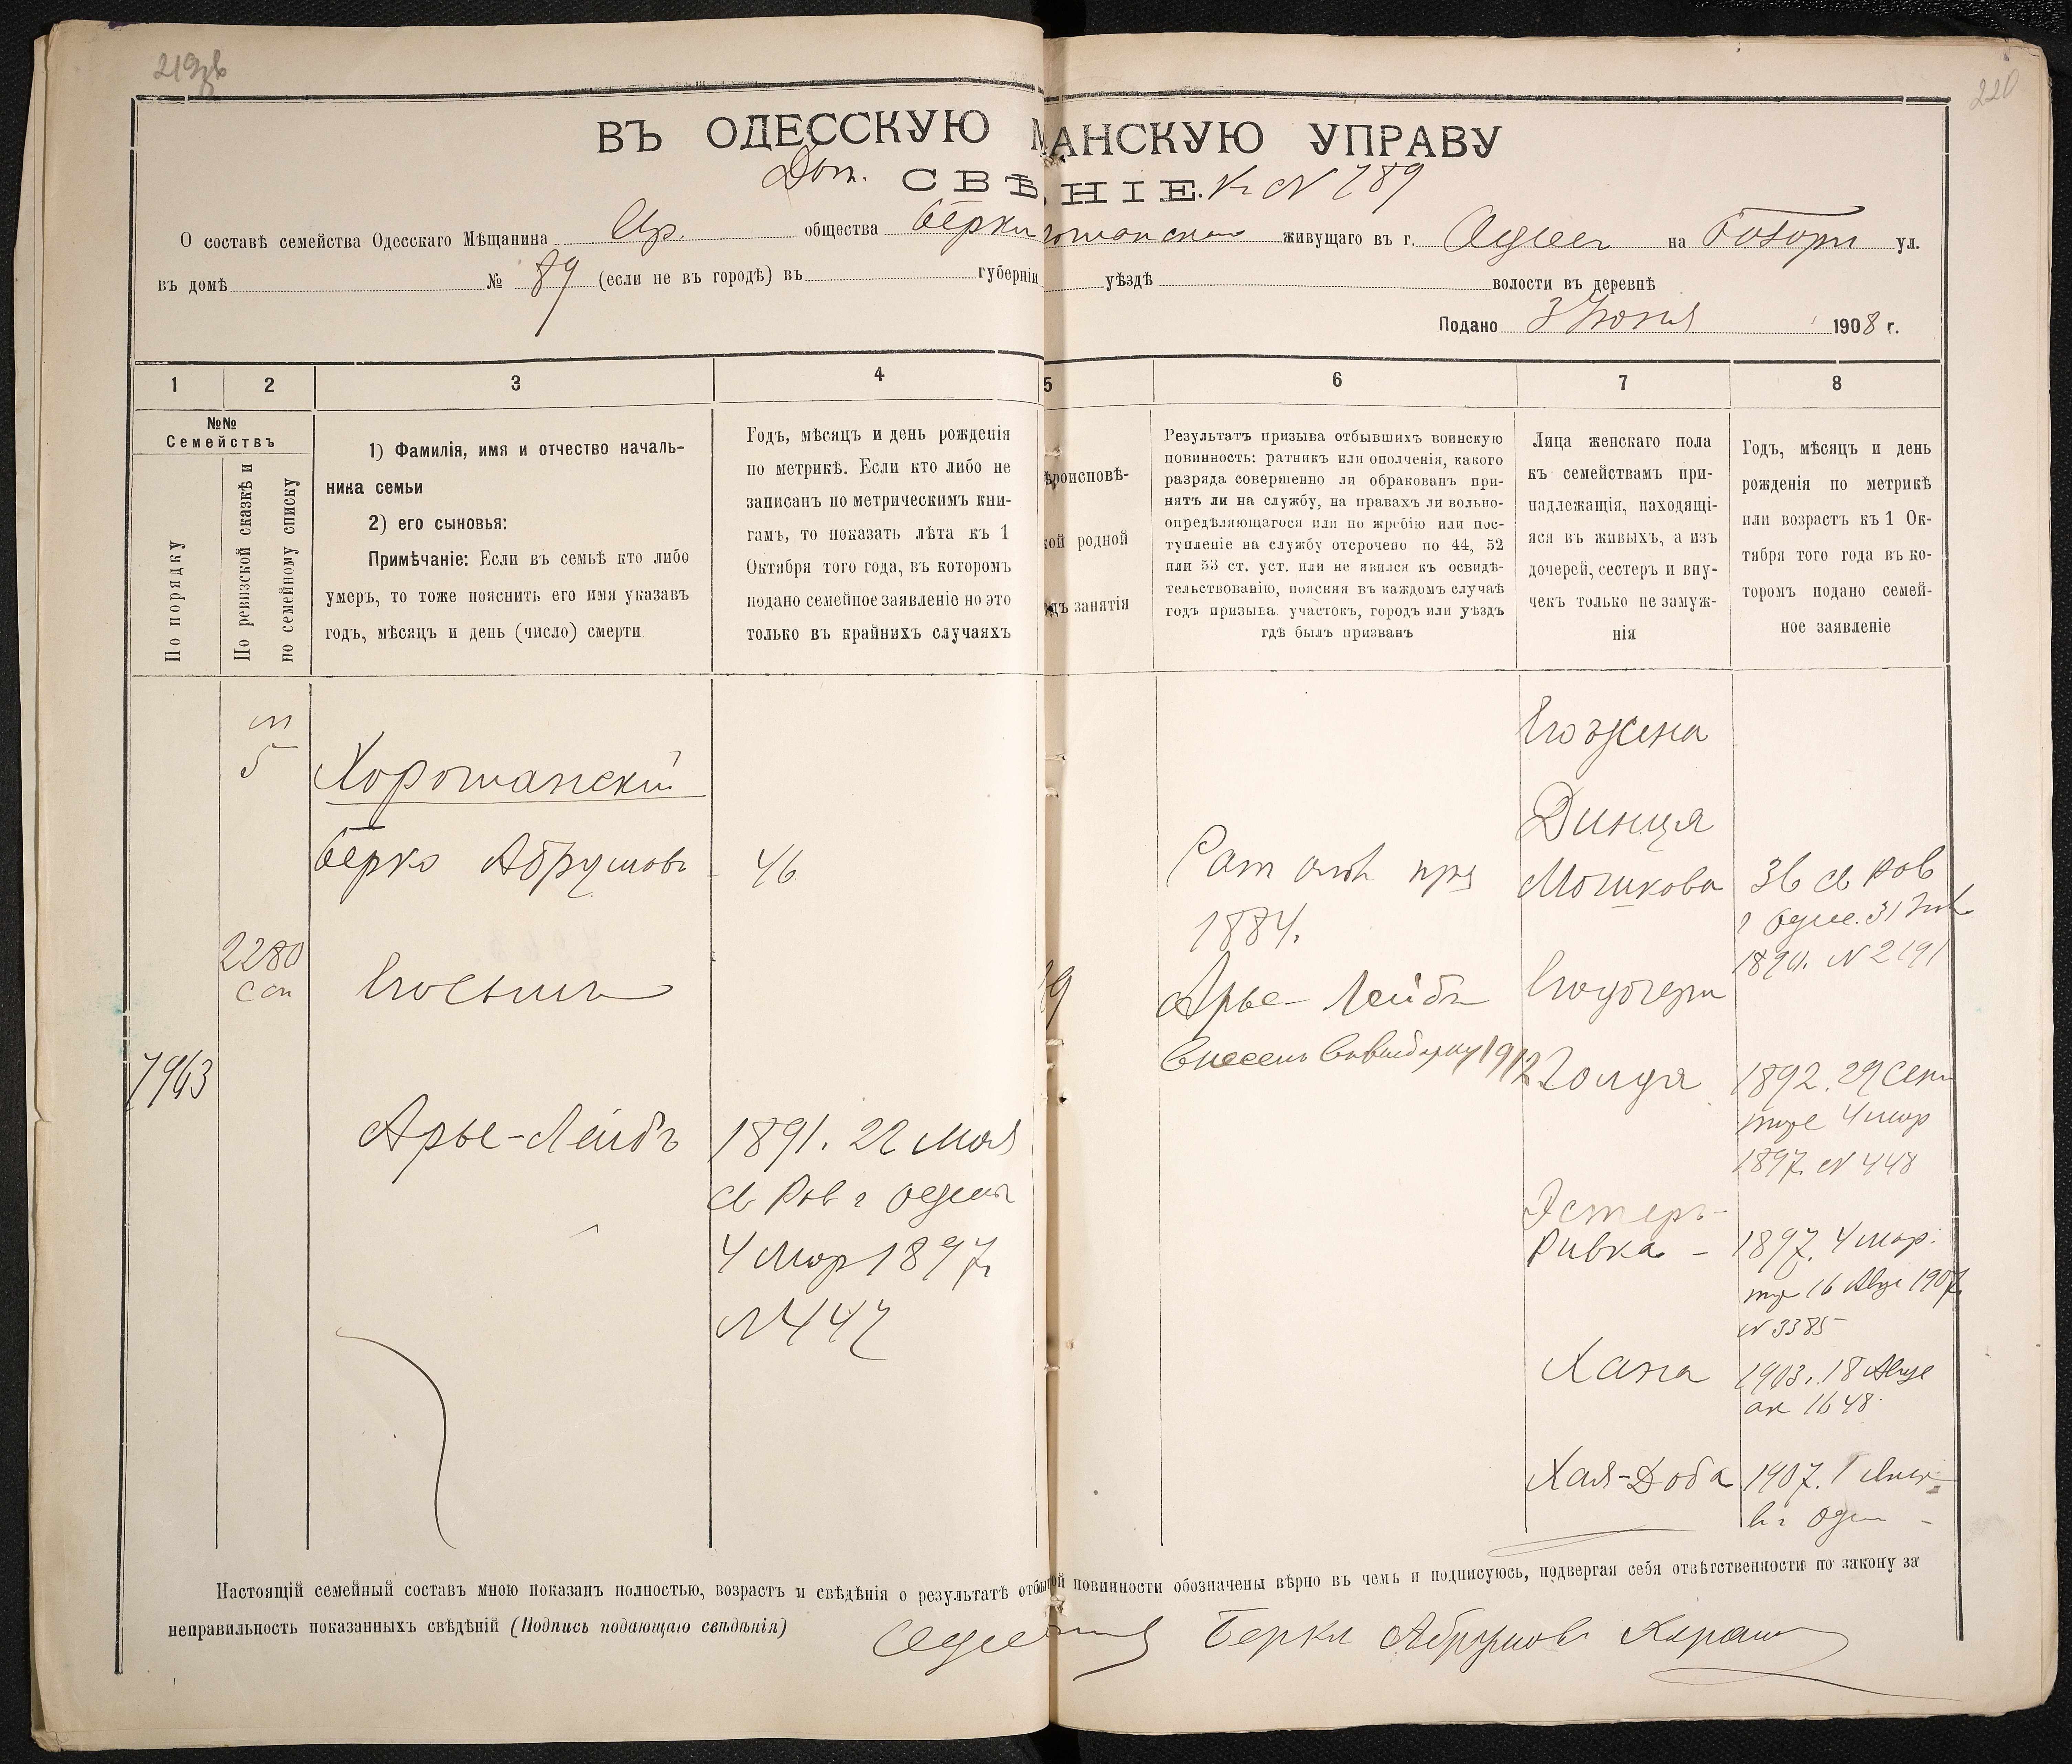 220
ВЪ ОДЕССКУЮ МАНСКУЮ УПРАВУ
СВѢНІЕ. К N 789
О составѣ семейства Одесскаго Мѣщанина общества Берки живущаго въ г. Одессѣ на ул.
въ домѣ № 89 (если не въ городѣ) въ губерніи уѣздѣ волости въ деревнѣ
Подано 3 Іюня 1908 г.
1 2 3 4 5 6 7 8
№№
Семействъ
По порядку
По ревизской сказкѣ и
по семейному списку
1) Фамилія, имя и отчество началь-
ника семьи
2) его сыновья:
Примѣчаніе: Если въ семьѣ кто либо
умеръ, то тоже пояснить его имя указавъ
годъ, мѣсяцъ и день (число) смерти
Годъ, мѣсяцъ и день рожденія
по метрикѣ. Если кто либо не
записанъ по метрическимъ кни-
гамъ, то показать лѣта къ 1
Октября того года, въ которомъ
подано семейное заявленіе но это
только въ крайнихъ случаяхъ
ѣроисповѣ-
кой родной
дъ занятія
Результатъ призыва отбывшихъ воинскую
повинность: ратникъ или ополченія, какого
разряда совершенно ли обракованъ при-
нятъ ли на службу, на правахъ ли вольно-
опредѣляющагося или по жребію или пос-
тупленіе на службу отсрочено по 44, 52
или 53 ст. уст. или не явился къ освидѣ-
тельствованію, поясняя въ каждомъ случаѣ
годъ призыва участокъ, городъ или уѣздъ
гдѣ былъ призванъ
Лица женскаго пола
къ семействамъ при-
надлежащія, находящі-
яся въ живыхъ, а изъ
дочерей, сестеръ и вну-
чекъ только не замуж-
нія
Годъ, мѣсяцъ и день
рожденія по метрикѣ
или возрастъ къ 1 Ок-
тября того года въ ко-
торомъ подано семей-
ное заявленіе
5
Хорошанскій
Берко Абрумовъ 46
2280
Его сынъ
7963
Арье-Лейбъ
1891. 22 Мая
св Рав г Одессы
4 Мар 1897 г
N 447
Рат опол
1884.
Арье-Лейбъ
Внесенъ 1912
Его жена
Диница
Мошкова
36 св Рав
г Одес. 31
N 2191
Его дочери
Голда
1892. 29 Сент
4 мар
1897. N 448
Эстеръ-
Ривка -
1897. 4 мар.
16 Авгу 1907
N 3385
Хана
1903. 18 Авгу
ак 1648.
Хая-Доба
1907. 1
въ г Одес
Настоящій семейный составъ мною показанъ полностью, возрастъ и свѣдѣнія о результатѣ отбы ой повинности обозначены вѣрно въ чемъ и подписуюсь, подвергая себя отвѣтственности по закону за
неправильность показанныхъ свѣдѣній (Подпись подающаго свѣдѣнія)
Берка Абрумовъ